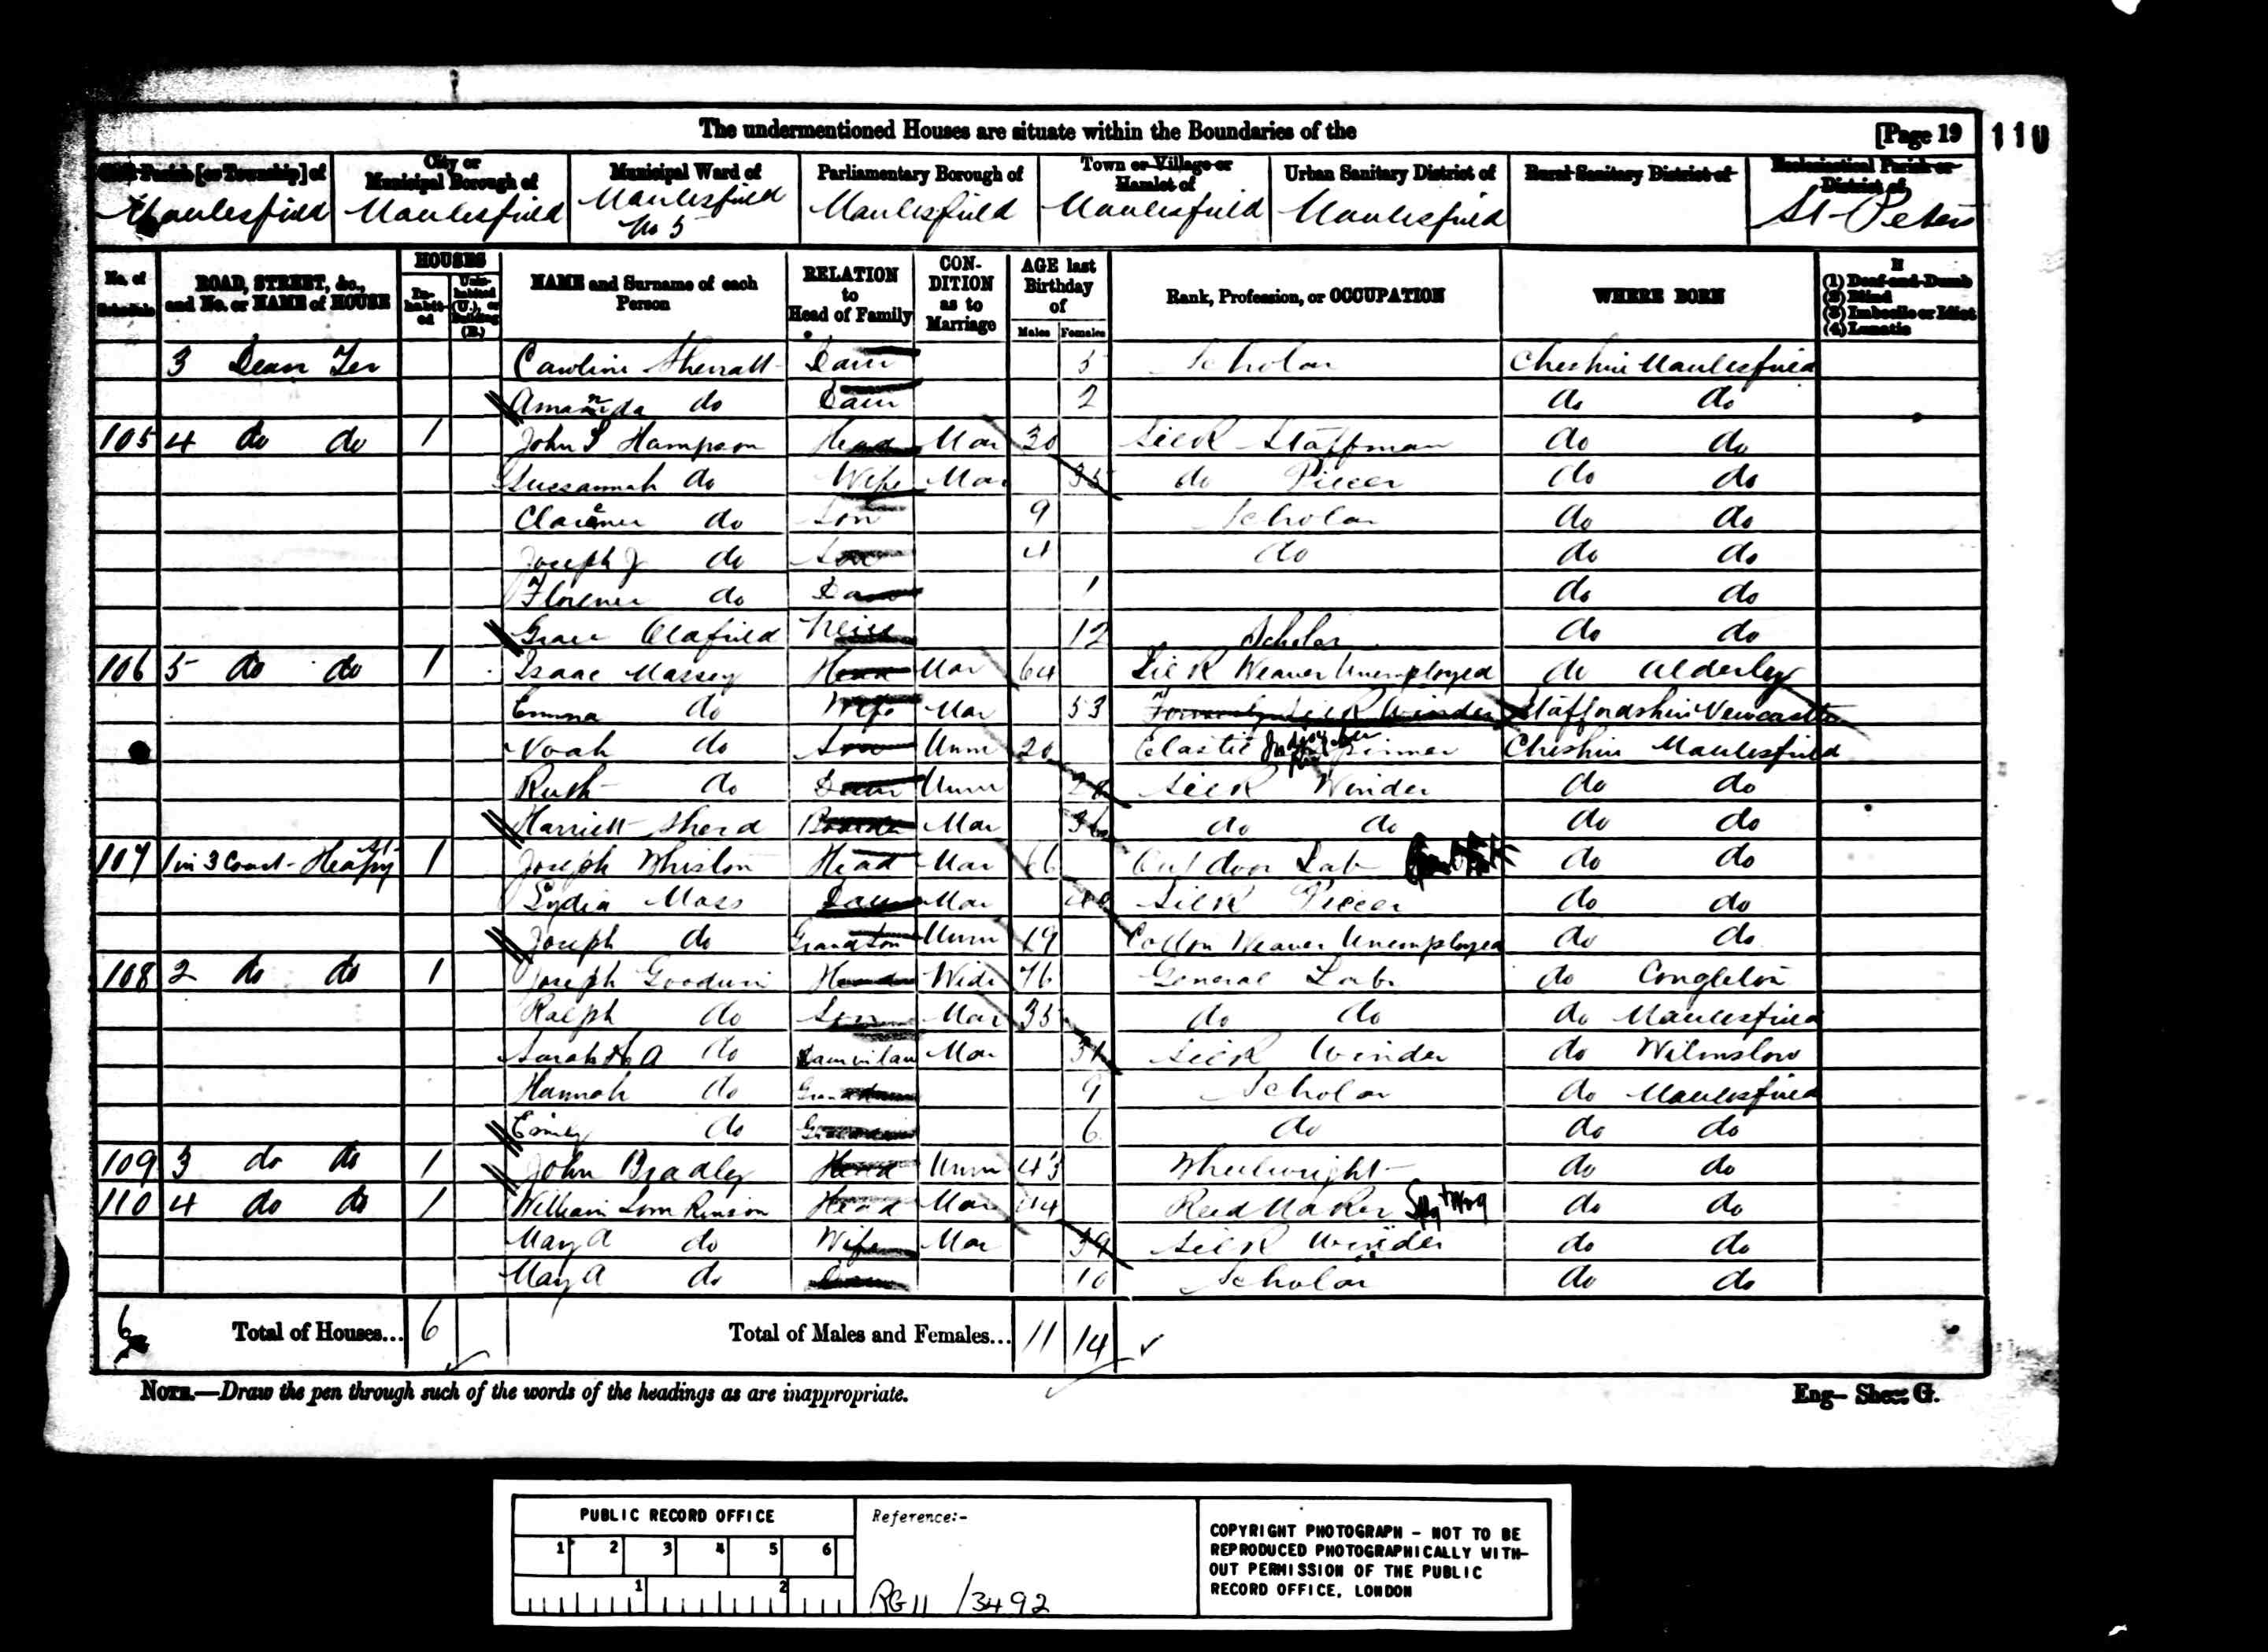 The undermentioned Houses are situate within the Boundaries of the [Page 19 110
Civil Parish [or Township] of City or Municipal Borough of Municipal Ward of Parliamentary Borough of Town or Village or Hamlet of Urban Sanitary District of Rural Sanitary District of Ecclesiastical Parish or District of
Macclesfield Macclesfield Macclesfield No 5 Macclesfield Macclesfield Macclesfield St Peters
No. of Schedule ROAD, STREET, &c., and No. or NAME of HOUSE HOUSES Inhabited Uninhabited (U.), or Building (B.) NAME and Surname of each Person RELATION to Head of Family CONDITION as to Marriage AGE last Birthday of Males Females Rank, Profession, or OCCUPATION WHERE BORN If (1) Deaf-and-Dumb (2) Blind (3) Imbecile or Idiot (4) Lunatic
3 Dean Ter Caroline Sherratt Daur 5 Scholar Cheshire Macclesfield
Amanda do Daur 2 do do
105 4 do do 1 John S Hampson Head Mar 30 Silk Staffman do do
Suesannah do Wife Mar 35 do Piecer do do
Clarence do Son 9 Scholar do do
Joseph J do Son 4 do do do
Florence do Daur 1 do do
Grace Oldfield Neice 12 Scholar do do
106 5 do do 1 Isaac Massey Head Mar 64 Silk Weaver Unemployed do Alderley
Emma do Wife Mar 53 Formerly Silk Winder Staffordshire Newcastle
Noah do Son Unm 20 Elastic Spinner Cheshire Macclesfield
Ruth do Daur Unm Silk Winder do do
Harriett Sherd Boarder Mar 36 do do do do
107 1 in 3 Court Heapy St 1 Joseph Whiston Head Mar 66 Outdoor Lab do do
Lydia Moss Daur Mar Silk Piecer do do
Joseph do Grandson Unm 19 Cotton Weaver Unemployed do do
108 2 do do 1 Joseph Goodwin Head Widr 76 General Labr do Congleton
Ralph do Son Mar 35 do do do Macclesfield
Sarah A do Daur in law Mar 31 Silk Winder do Wilmslow
Hannah do Grandaur 9 Scholar do Macclesfield
Emily do Grandaur 6 do do do
109 3 do do 1 John Bradley Head Unm 43 Wheelwright do do
110 4 do do 1 William Tomkinson Head Mar 44 Reed Maker do do
Mary A do Wife Mar 39 Silk Winder do do
Mary A do Daur 10 Scholar do do
6 Total of Houses... 6 Total of Males and Females... 11 14
NOTE.—Draw the pen through such of the words of the headings as are inappropriate. Eng— Sheet G.
PUBLIC RECORD OFFICE
1 2 3 4 5 6
1 2
Reference:-
RG 11 / 3492
COPYRIGHT PHOTOGRAPH - NOT TO BE
REPRODUCED PHOTOGRAPHICALLY WITH-
OUT PERMISSION OF THE PUBLIC
RECORD OFFICE, LONDON